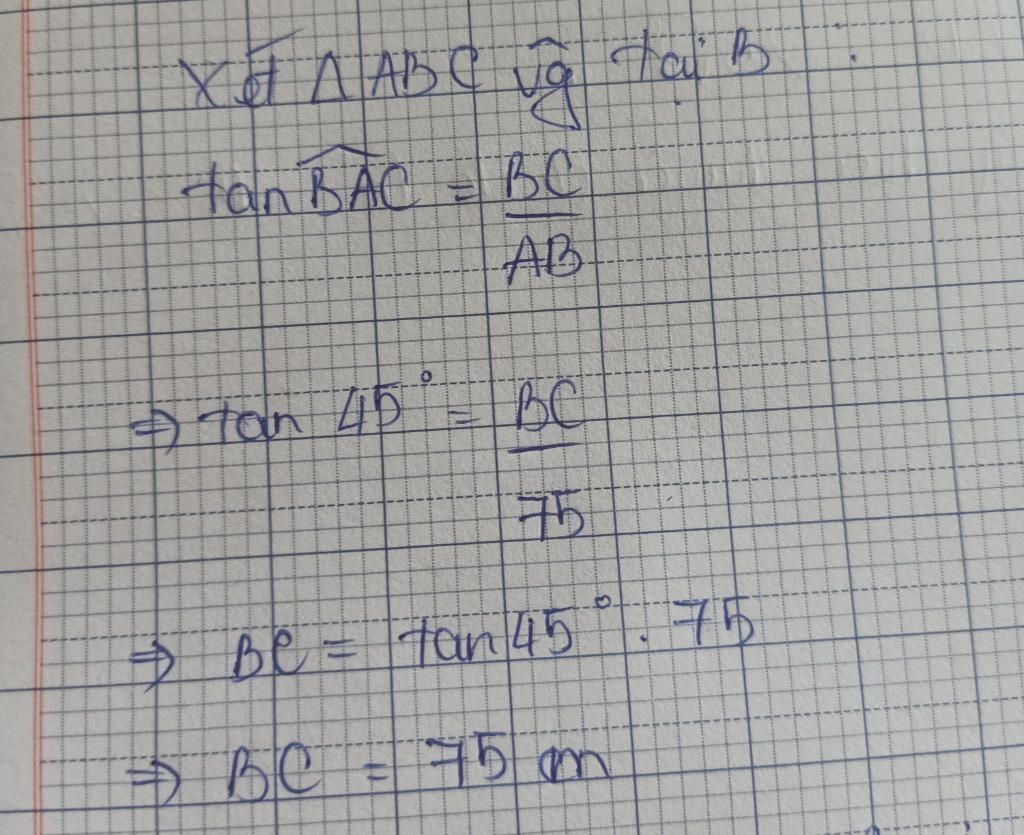 Xét Δ ABC vg̑ tại B :
tan B̂AC = BC
AB
⇒ tan 45° = BC
75
⇒ BC = tan 45° . 75
⇒ BC = 75 m